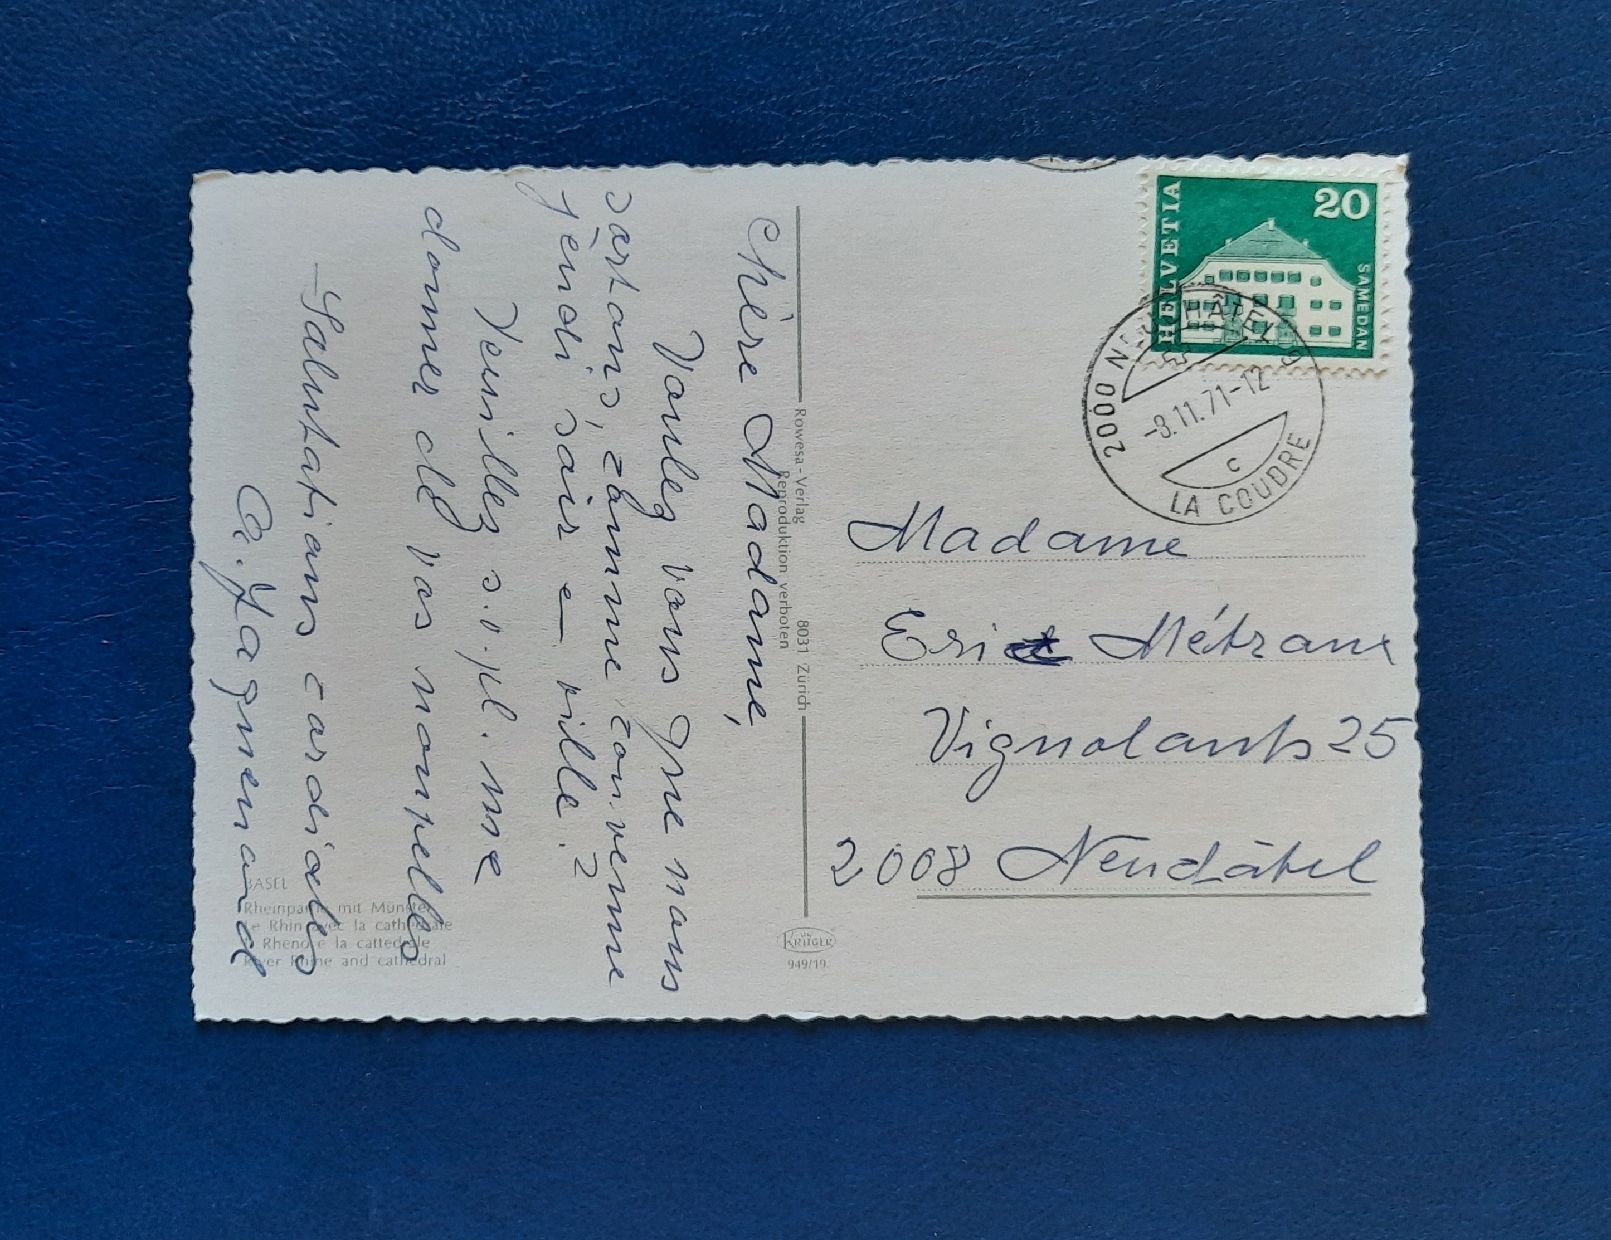 chère Madame,
Voulez vous que nous
sortons, comme convenue
jeudi soir en ville?
Veuillez s.v.pl. me
donner de vos nouvelles
Salutations cordiales
Rowesa - Verlag 8031 Zürich
Reproduktion verboten
BASEL
Rheinpartie mit Münster
Le Rhin avec la cathédrale
Il Rheno e la cattedrale
River Rhine and cathedral
KRÜGER
949/19
HELVETIA
20
SAMEDAN
2000 NEUCHÂTEL 9
-8.11.71-12
C
LA COUDRE
Madame
Eric Métraux
Vignolants 25
2008 Neuchâtel